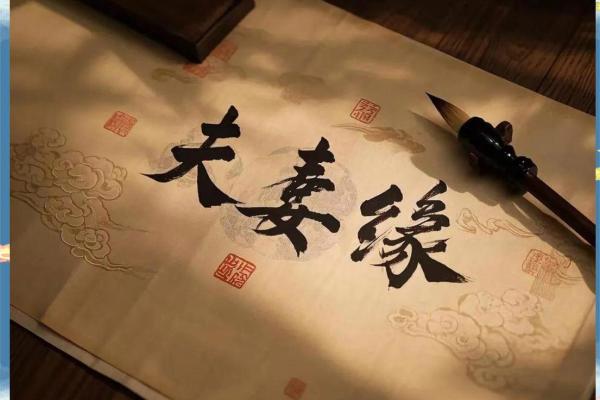 夫妻缘